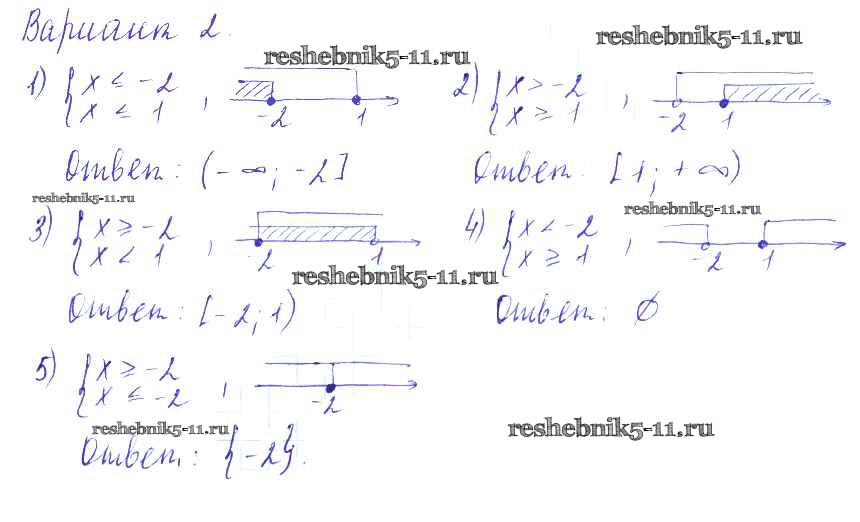 Вариант 2.
reshebnik5-11.ru
reshebnik5-11.ru
1) { x ≤ -2
x ≤ 1 , -2 1
2) { x > -2
x ≥ 1 , -2 1
Ответ: (-∞; -2]
Ответ: [1; +∞)
reshebnik5-11.ru
reshebnik5-11.ru
3) { x ≥ -2
x < 1 , -2 1
4) { x < -2
x ≥ 1 , -2 1
reshebnik5-11.ru
Ответ: [-2; 1)
Ответ: ∅
5) { x ≥ -2
x ≤ -2 , -2
reshebnik5-11.ru
reshebnik5-11.ru
Ответ: {-2}.